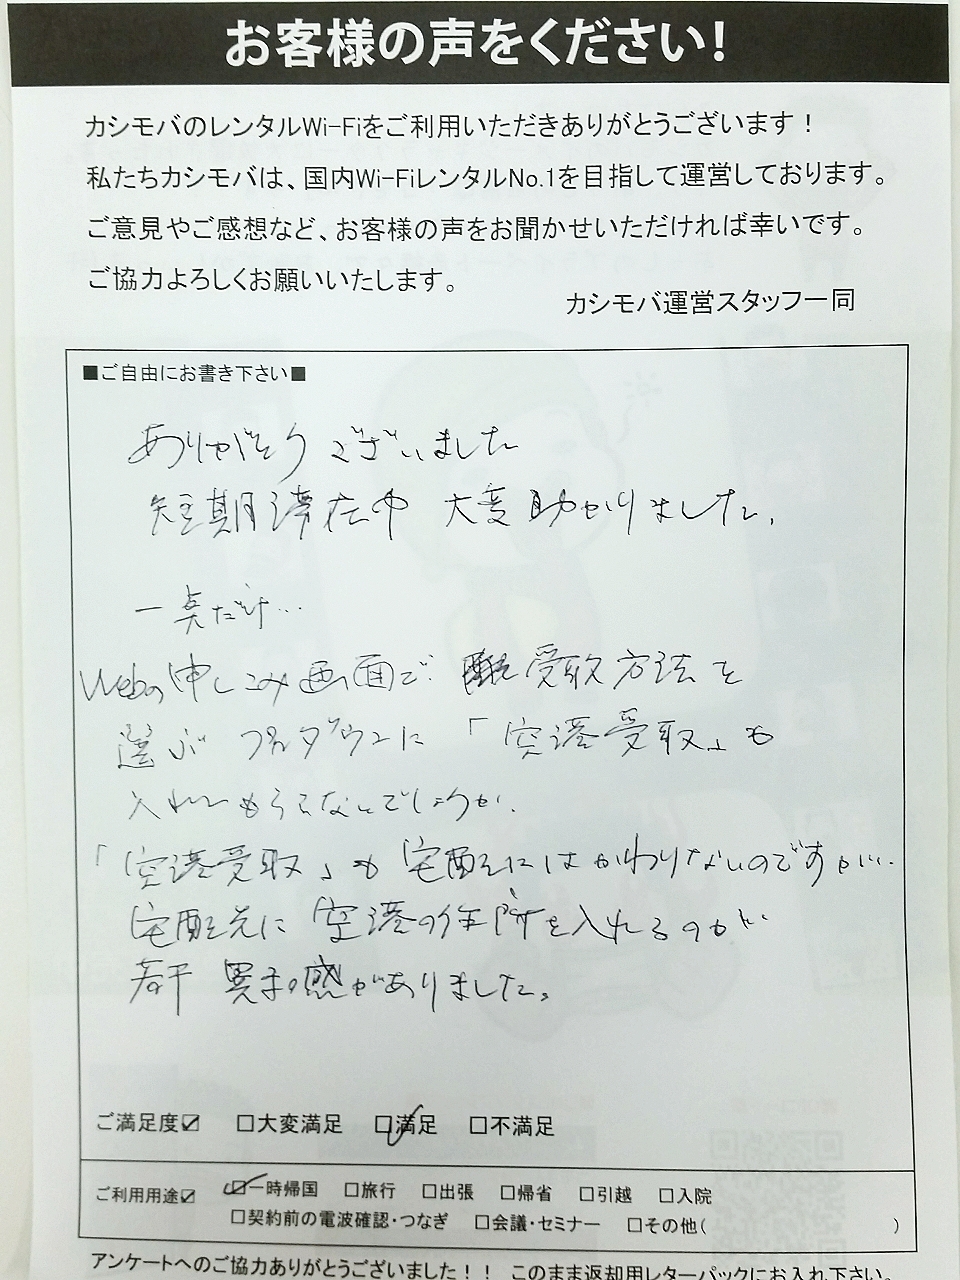 お客様の声をください!
カシモバのレンタルWi-Fiをご利用いただきありがとうございます!
私たちカシモバは、国内Wi-FiレンタルNo.1を目指して運営しております。
ご意見やご感想など、お客様の声をお聞かせいただければ幸いです。
ご協力よろしくお願いいたします。
カシモバ運営スタッフ一同
■ご自由にお書き下さい■
ありがとうございました
短期滞在中 大変助かりました。
一点だけ…
Webの申しこみ画面で 受取方法を
選ぶプルダウンに「空港受取」も
入れてもらえないでしょうか.
「空港受取」も宅配にはかわりないのですが…
宅配先に空港の住所を入れるのが
若干 異和感がありました。
ご満足度☑ □大変満足 ☑満足 □不満足
ご利用用途☑ ☑一時帰国 □旅行 □出張 □帰省 □引越 □入院
□契約前の電波確認・つなぎ □会議・セミナー □その他( )
アンケートへのご協力ありがとうございました!! このまま返却用レターパックにお入れ下さい。